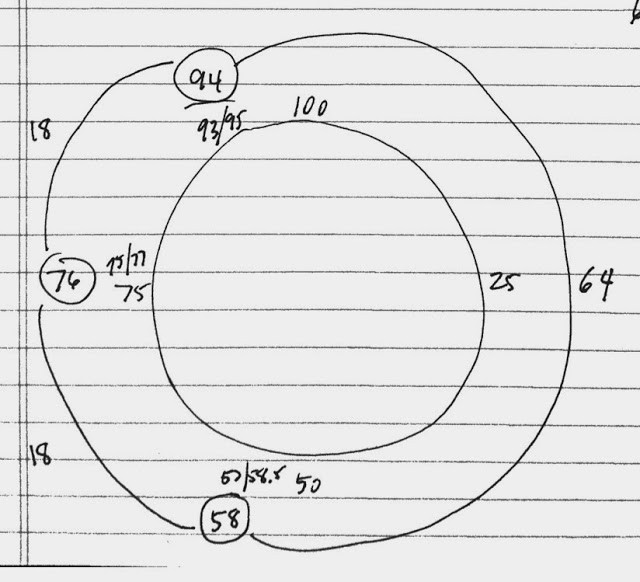 94
93/95
100
18
76
75/77
75
25
64
18
57/58.5
50
58